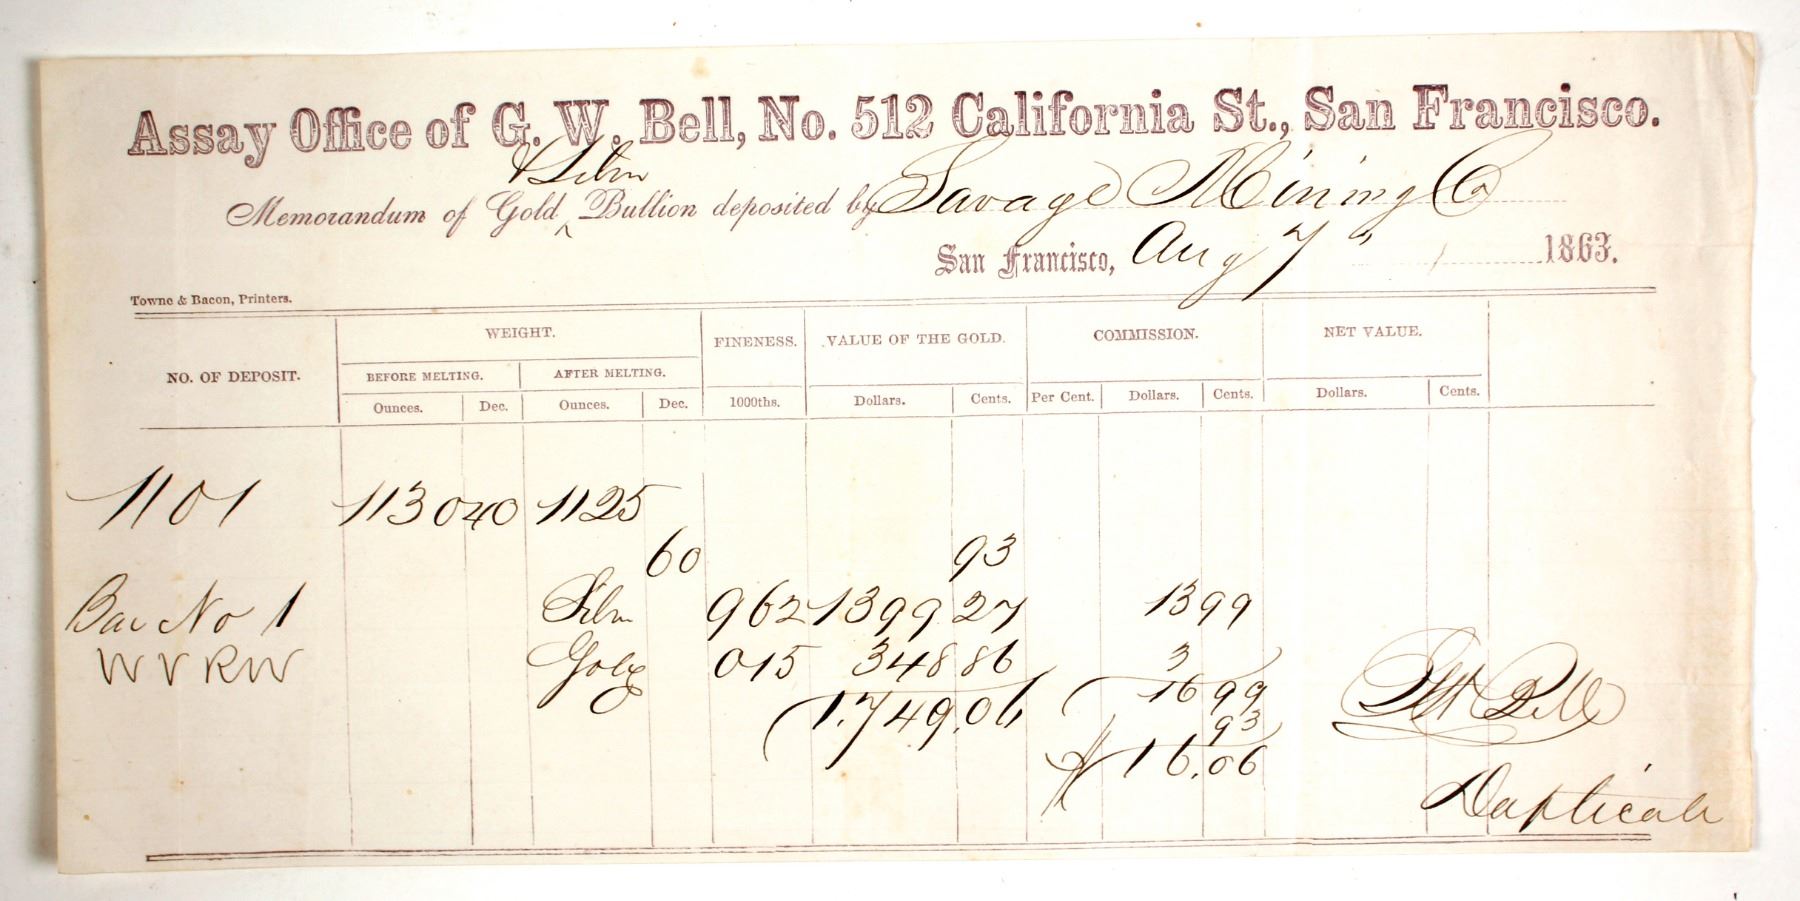 Assay Office of G. W. Bell, No. 512 California St., San Francisco.
& Silver
Memorandum of Gold ^ Bullion deposited by Savage Mining Co
San Francisco, Aug 7 " 1863.
Towne & Bacon, Printers.
NO. OF DEPOSIT. WEIGHT. FINENESS. VALUE OF THE GOLD. COMMISSION. NET VALUE.
BEFORE MELTING. AFTER MELTING.
Ounces. Dec. Ounces. Dec. 1000ths. Dollars. Cents. Per Cent. Dollars. Cents. Dollars. Cents.
1101 1130 40 1125
60 93
Bar No 1 Silver 962 1399 27 13 99
W V R W Gold 015 348 86 3
1.749.06 16 99
93
16.06
GW Bell
Duplicate